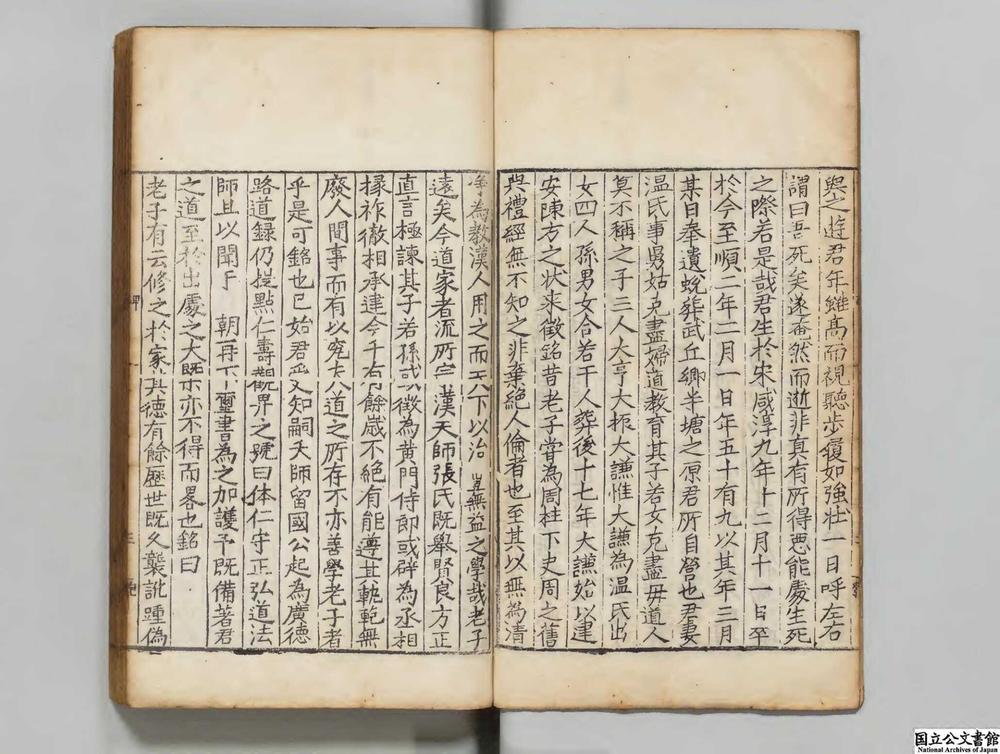 與之遊君年雖髙而視聽步履如強壮一日呼左右
謂曰吾死矣遂奄然而逝非真有所得惡能處生死
之際若是㢤君生於宋咸淳九年十二月十一日卒
於今至順二年二月一日年五十有九以其年三月
某日奉遺蛻葬武丘鄉半塘之原君所自營也君妻
温氏事舅姑克盡婦道教育其子若女克盡毋道人
莫不稱之子三人大亨大振大謙惟大謙為温氏出
女四人孫男女合若干人葬後十七年大謙始以建
安陳方之状来徵銘昔老子甞為周柱下史周之舊
與禮經無不知之非棄絶人倫者也至其以無為清
淨為教漢人用之而天下以治豈無益之學哉老子
逺矣今道家者流所宗漢天師張氏既舉賢良方正
直言極諫其子若孫或徴為黄門侍郎或辟為丞相
掾祚徹相承逹今千有餘歲不絶有能遵其軌範無
廢人間事而有以究夫道之所存不亦善學老子者
乎是可銘也已始君受知嗣天師留國公起為廣徳
路道録仍提點仁壽觀畀之號曰体仁守正弘道法
師且以聞于 朝再下璽書為之加護予既備著君
之道至於出處之大既亦不得而畧也銘曰
老子有云修之於家其徳有餘歷世既久襲訛踵偽